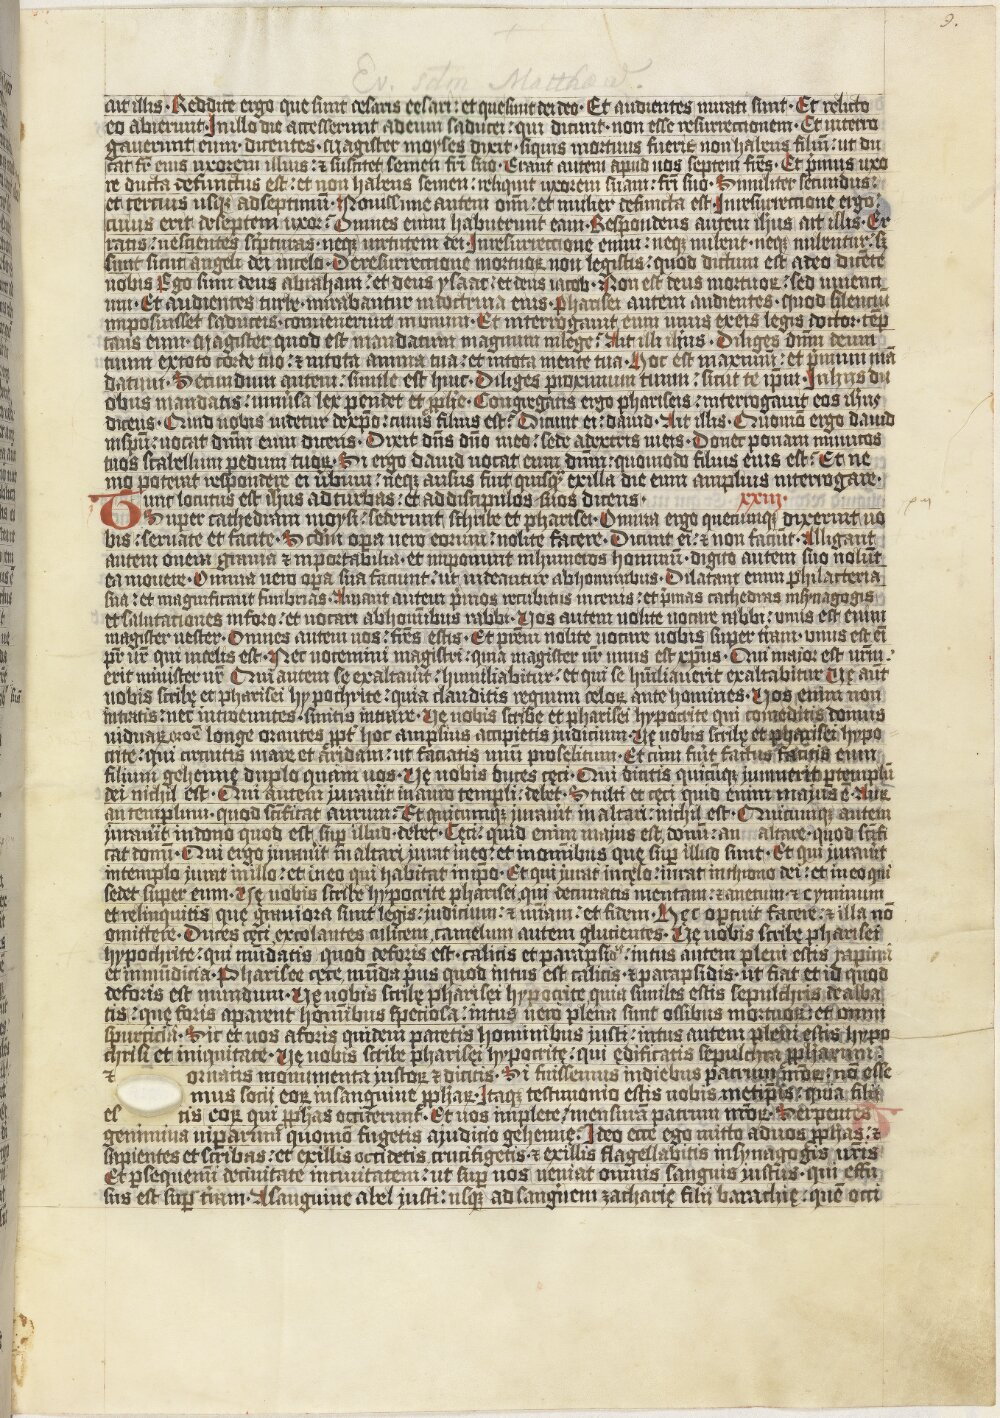 9.
Ev. sctm Matthaeū.
ait illis. Reddite ergo que sunt cesaris cesari: et que sunt dei deo. Et audientes mirati sunt. Et relicto
eo abierunt. In illo die accesserunt ad eum saducei: qui dicunt. non esse resurrectionem. Et interro
gaverunt eum. dicentes. Magister moyses dixit. siquis mortuus fuerit non habens filiū: ut du
cat fr̄ eius uxorem illius: ⁊ suscitet semen fr̄i suo. Erant autem apud nos septem fr̄es. Et p̄mus uxo
re ducta defunctus est: et non habens semen: reliquit uxorem suam: fr̄i suo. Similiter secundus:
et tercius usqꝫ ad septimū. Novissime autem om̄i: et mulier defuncta est. In resurrectione ergo:
cuius erit de septem uxor? Omnes enim habuerunt eam. Respondens autem ih̄us ait illis. Er
ratis: nescientes sc̄pturas: neqꝫ virtutem dei. In resurrectione enim: neqꝫ nubent. neqꝫ nubentur: sꝫ
sunt sicut angeli dei in celo. De resurrectione mortuoꝝ non legistis: quod dictum est a deo dicēte
vobis Ego sum deus abraham: et deus ysaac: et deus iacob. Non est deus mortuoꝝ: sed viventi
um. Et audientes turbe. mirabantur in doctrina eius. Pharisei autem audientes. quod silencium
imposuisset saduceis: convenerunt in unum. Et interrogavit eum unus ex eis legis doctor. tēp
tans eum. Magister quod est mandatum magnum in lege? Ait illi ih̄us. Diliges dn̄m deum
tuum ex toto corde tuo: ⁊ in tota anima tua: et in tota mente tua. Hoc est maximū: et p̄mum mā
datum. Secundum autem: simile est huic. Diliges proximum tuum: sicut te ip̄m. In hiis du
obus mandatis: univ̄sa lex pendet et ꝓphe. Congregatis ergo phariseis: interrogavit eos ih̄us
dicens. Quid vobis videtur de xp̄o: cuius filius est? Dicunt ei: david. Ait illis. Quomō ergo david
in sp̄u: vocat dn̄m eum dicens. Dixit dn̄s dn̄o meo: sede a dextris meis. Donec ponam inimicos
tuos scabellum pedum tuoꝝ. Si ergo david vocat eum dn̄m: quomodo filius eius est? Et ne
mo poterat respondere ei v̄bum: neqꝫ ausus fuit quisqꝫ ex illa die eum amplius interrogare.
Tunc locutus est ih̄us ad turbas: et ad discipulos suos dicens. xxiii.
Super cathedram moysi: sederunt scribe et pharisei. Omnia ergo quecumqꝫ dixerint vo
bis: servate et facite. Scdm̄ opa vero eorum: nolite facere. Dicunt ei̅: ⁊ non faciūt. Alligant
autem onera gravia ⁊ inportabilia. et imponunt in humeros hominū: digito autem suo nolūt
ea movere. Omnia vero opa sua faciunt: ut videantur ab hominibus. Dilatant enim philacteria
sua: et magnificant fimbrias. Amant autem p̄mos recubitus in cenis: et p̄mas cathedras in synagogis
et salutationes in foro: et vocari ab hom̄ibus rabbi. Vos autem nolite vocare rabbi: unus est enim
magister vester. Omnes autem vos: fr̄es estis. Et pr̄em nolite vocare vobis super t̄ram. unus est ei̅
pr̄ vr̄ qui in celis est. Nec vocemini magistri: quia magister vr̄ unus est xp̄us. Qui maior est vr̄m:
erit minister vr̄ Qui autem se exaltavit: humiliabitur: et qui se hūiliaverit exaltabitur Ve aut
vobis scribe et pharisei hypochrite: quia clauditis regnum celoꝝ ante homines. Vos enim non
intratis: nec introeuntes. sinitis intrare. Ve vobis scribe et pharisei hypocrite qui comeditis domus
viduaꝝ oroē longe orantes ꝓpt̄ hoc amplius accipietis judicium. Ve vobis scribe et pharisei hypo
crite: qui circuitis mare et aridam: ut faciatis unū proselitum. Et cum fūit factus facitis eum
filium gehenne duplo quam vos. Ve vobis duces ceci. Qui dicitis quicūqꝫ juraverit p templū
dei nichil est. Qui autem juravīt in auro templi: debet. Stulti et ceci quid enim majus ē. Auꝝ
an templum. quod sc̄ificat aurum? Et quicumqꝫ juravit in altari: nichil est. Quicumqꝫ autem
juraverit in dono quod est sup illud. debet. Ceci: quid enim majus est donū: an altare. quod sc̄ifi
cat donū. Qui ergo juravit in altari jurat in eo: et in om̄ibus que sup illud sunt. Et qui juravīt
in templo jurat in illo: et in eo qui habitat in ip̄o. Et qui jurat in celo: iurat in throno dei: et in eo qui
sedet super eum. Ve vobis scribe hypocrite pharisei. qui decimatis mentam: ⁊ anetum: ⁊ cyminum
et relinquitis que graviora sunt legis: judicium: ⁊ mi̅am: et fidem. Hec oportuit facere: ⁊ illa nō
omittere. Duces ceci excolantes culicem. camelum autem glucientes. Ve vobis scribe pharisei
hypochrite: qui mūdatis quod deforis est. calicis et parapsidis: intus autem pleni estis rapina
et inmūdicia. Pharisee cece mūnda p̄us quod intus est calicis. ⁊ parapsidis. ut fiat et id quod
deforis est mundum. Ve vobis scribe pharisei hypocrite quia similes estis sepulchris dealba
tis: que foris aparent hom̄ibus speciosa: intus vero plena sunt ossibus mortuoꝝ: et omni
spurcicia. Sic et vos aforis quidem paretis hominibus justi: intus autem pleni estis hypo
chrisi et iniquitate. Ve vobis scribe pharisei hypocrite: qui edificatis sepulchra ꝓpharum:
⁊ ornatis monumenta justoꝝ ⁊ dicitis. Si fuissemus in diebus patrum nr̄oꝝ: nō esse
mus socii eoꝝ in sanguine ꝓphaꝝ. Itaqꝫ testimonio estis vobis metip̄is: quia filii
es tis eoꝝ qui ꝓphas occiderunt. Et vos implete: mensuram patrum vr̄oꝝ. Serpentes
genimina viparum quomō fugietis a judicio gehenne? Ideo ecce ego mitto ad vos ꝓphas: ⁊
sapientes et scribas: et ex illis occidetis. crucifigetis: ⁊ ex illis flagellabitis in synagogis vr̄is
Et ꝑsequemi̅ de civitate in civitatem: ut sup vos veniat omnis sanguis justus. qui effu
sus est sup t̄ram. A sanguine abel justi: usqꝫ ad sangui̅em zacharie filii barachie: quē occi